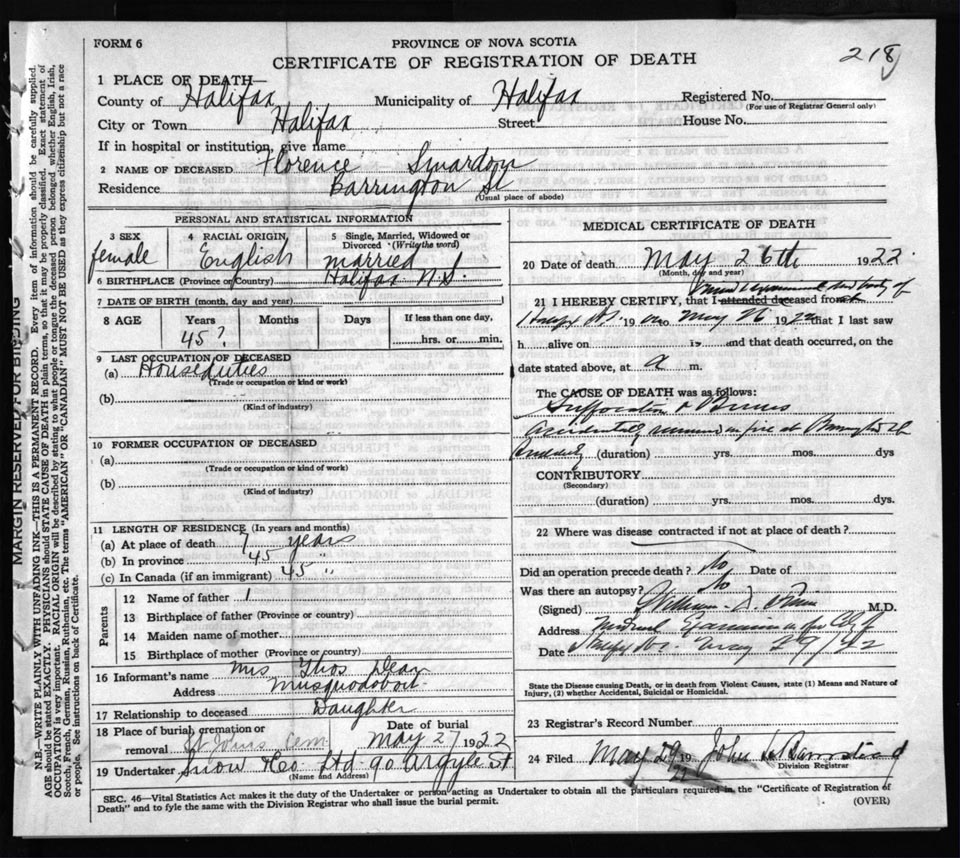 FORM 6
PROVINCE OF NOVA SCOTIA
CERTIFICATE OF REGISTRATION OF DEATH
218
1 PLACE OF DEATH—
County of Halifax Municipality of Halifax Registered No.
(For use of Registrar General only)
City or Town Halifax Street House No.
If in hospital or institution, give name
2 NAME OF DECEASED Florence Swardon
Residence Barrington St
(Usual place of abode)
PERSONAL AND STATISTICAL INFORMATION
3 SEX 4 RACIAL ORIGIN 5 Single, Married, Widowed or Divorced (Write the word)
female English married
6 BIRTHPLACE (Province or Country) Halifax N.S.
7 DATE OF BIRTH (month, day and year)
8 AGE Years Months Days If less than one day,
45? hrs. or min.
9 LAST OCCUPATION OF DECEASED
(a) House duties
(Trade or occupation or kind or work)
(b)
(Kind of industry)
10 FORMER OCCUPATION OF DECEASED
(a)
(Trade or occupation or kind of work)
(b)
(Kind of industry)
11 LENGTH OF RESIDENCE (In years and months)
(a) At place of death 7 years
(b) In province 45 "
(c) In Canada (if an immigrant) 45 "
Parents
12 Name of father
13 Birthplace of father (Province or country)
14 Maiden name of mother
15 Birthplace of mother (Province or country)
16 Informant's name Mrs Thos Dean
Address Musquodoboit
17 Relationship to deceased Daughter
18 Place of burial, cremation or removal St Johns Cem Date of burial May 27 1922
19 Undertaker Snow & Co Ltd 90 Argyle St
(Name and Address)
MEDICAL CERTIFICATE OF DEATH
20 Date of death May 26th 1922
(Month, day and year)
body of
21 I HEREBY CERTIFY, that I attended deceased from
19 to May 26 1922 that I last saw
h alive on 19 and that death occurred, on the
date stated above, at a m.
The CAUSE OF DEATH was as follows:
Suffocation & Burns
accidentally in fire at
(duration) yrs. mos. dys
CONTRIBUTORY
(Secondary)
(duration) yrs. mos. dys.
22 Where was disease contracted if not at place of death?
Did an operation precede death? No Date of
Was there an autopsy? No
(Signed) M.D.
Address Medical Examiner for City of
Date May 29/22
State the Disease causing Death, or in death from Violent Causes, state (1) Means and Nature of
Injury, (2) whether Accidental, Suicidal or Homicidal.
23 Registrar's Record Number
24 Filed May 29 19 22 John
Division Registrar
SEC. 46—Vital Statistics Act makes it the duty of the Undertaker or person acting as Undertaker to obtain all the particulars required in the "Certificate of Registration of
Death" and to fyle the same with the Division Registrar who shall issue the burial permit.
(OVER)
MARGIN RESERVED FOR BINDING
N.B.—WRITE PLAINLY WITH UNFADING INK—THIS IS A PERMANENT RECORD. Every item of information should be carefully supplied.
AGE should be stated EXACTLY. PHYSICIANS should STATE CAUSE OF DEATH in plain terms, so that it may be properly classified. Exact statement of
OCCUPATION is very important. RACIAL ORIGIN will be described by stating to what people or tongue the deceased person belonged whether English, Irish,
Scotch, French, German, Russian, Ruthenian, etc. The terms "AMERICAN" OR "CANADIAN" MUST NOT BE USED as they express citizenship but not a race
or people. See instructions on back of Certificate.